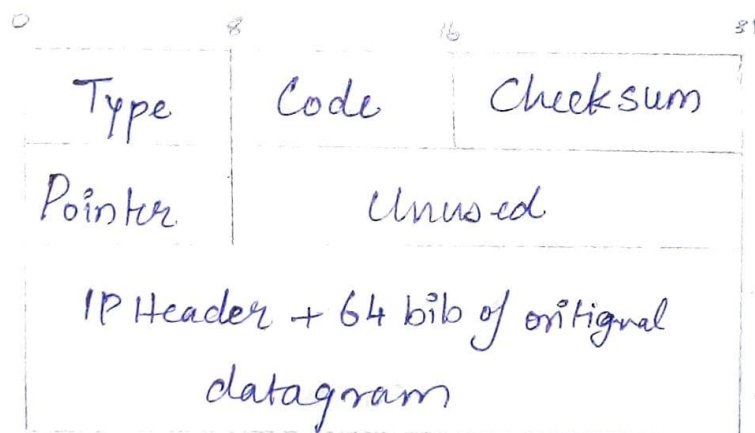 0 8 16 31
Type Code Checksum
Pointer Unused
IP Header + 64 bib of oritignal
datagram